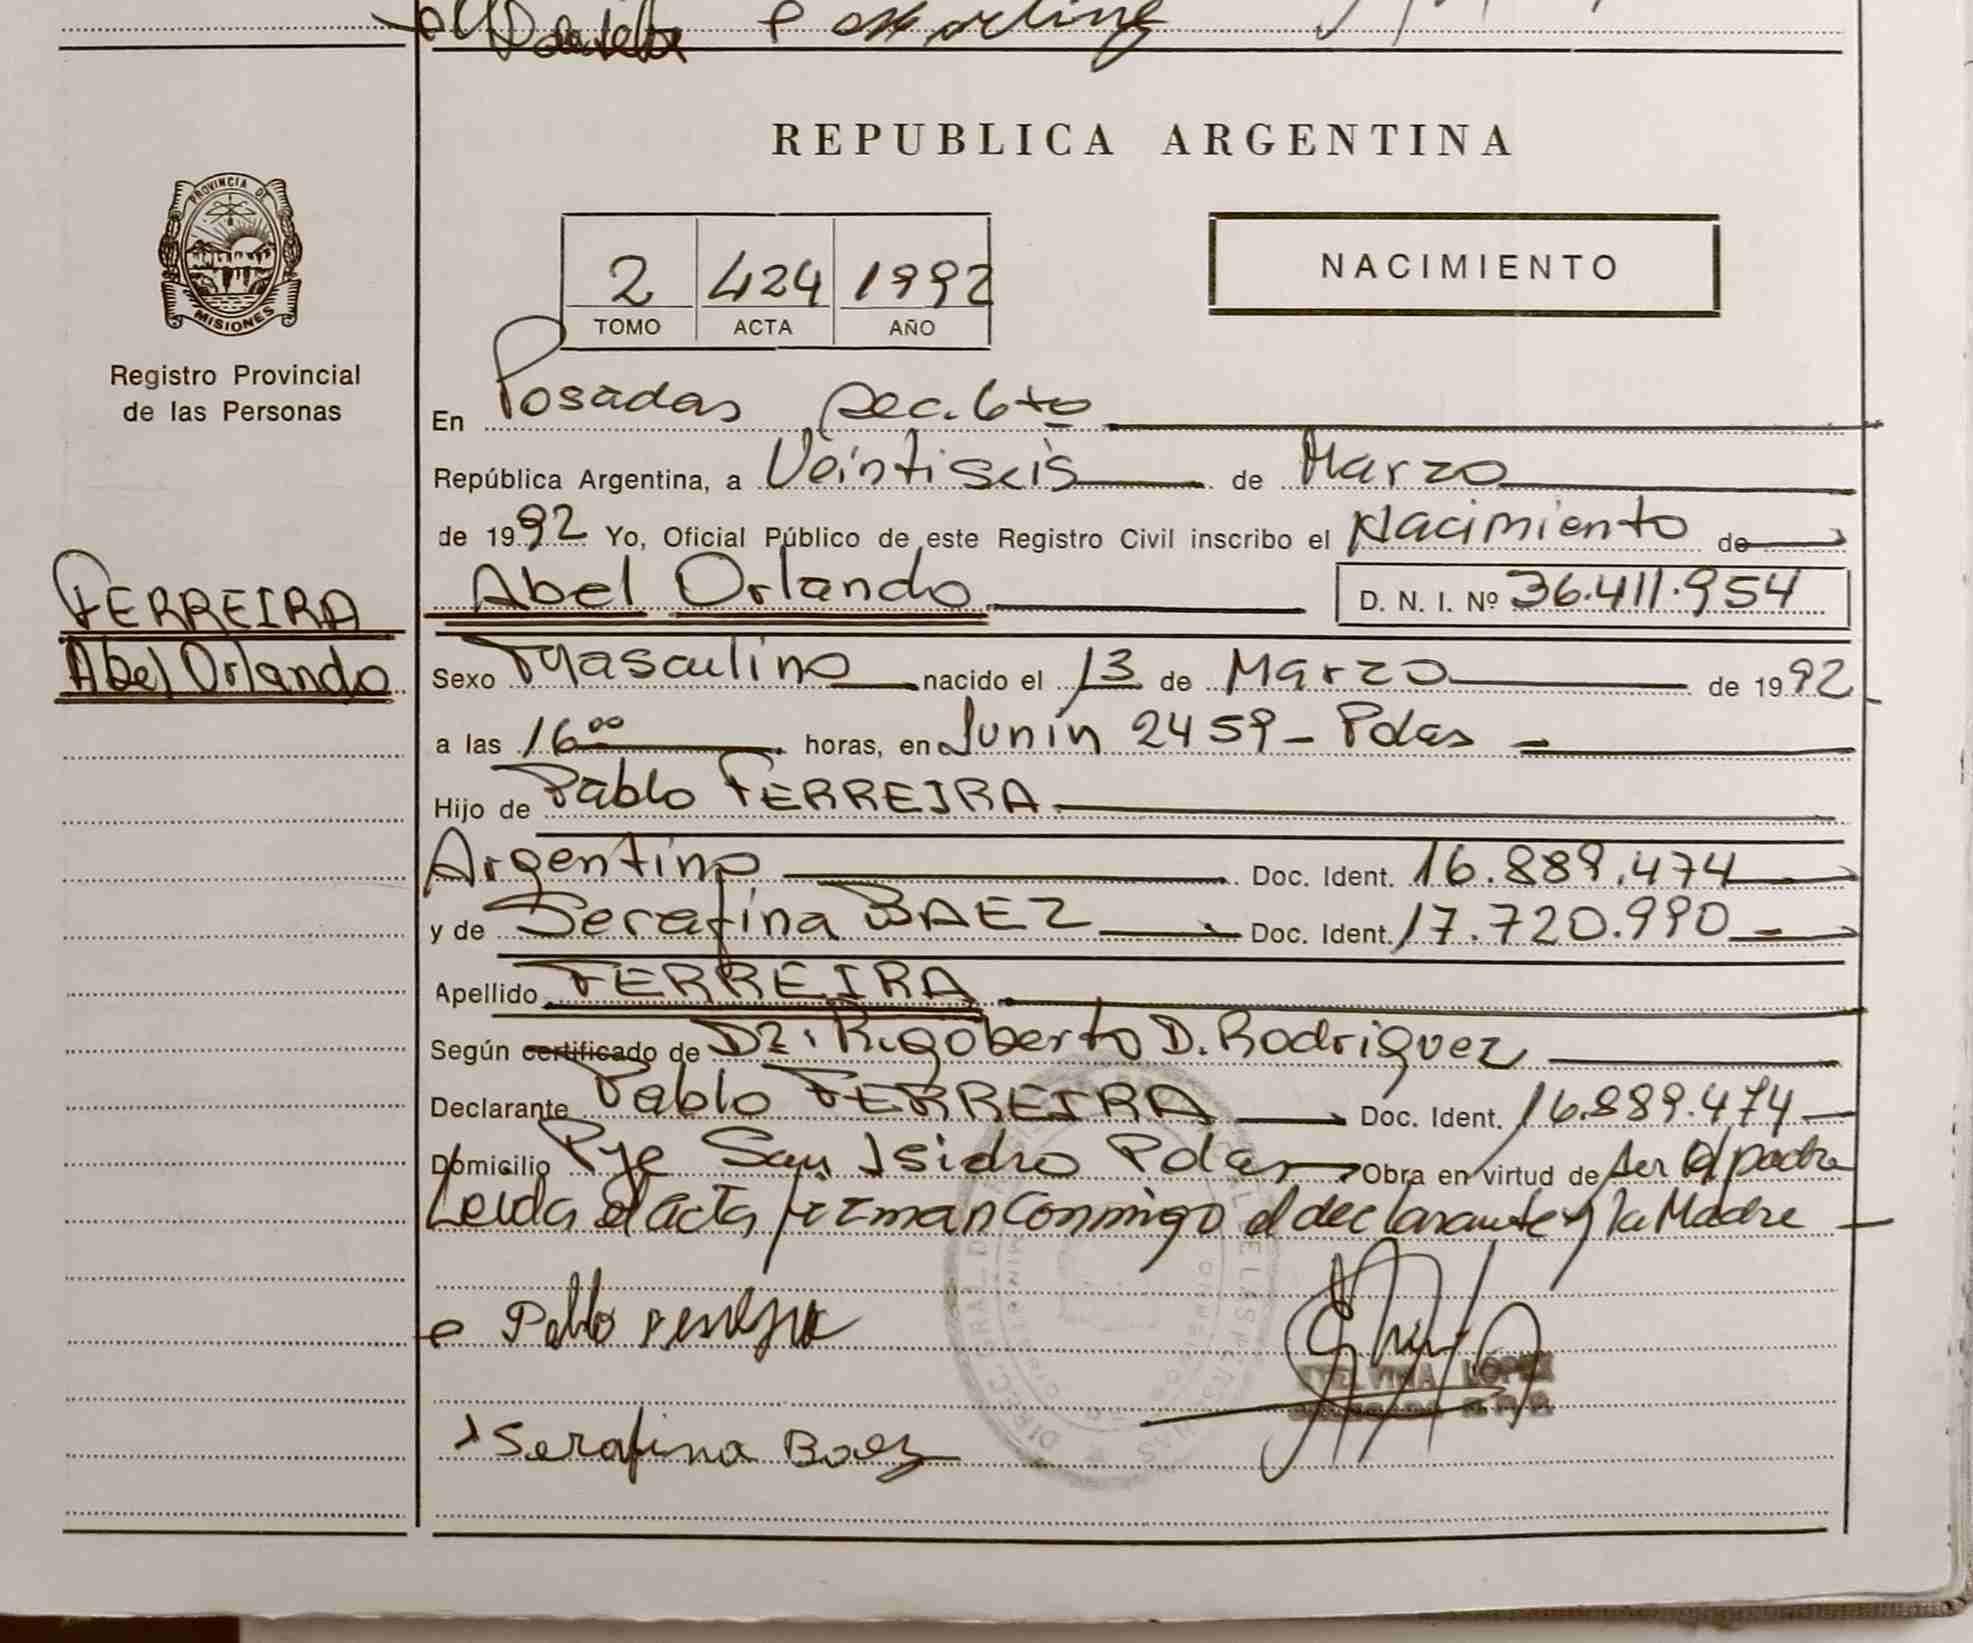 REPUBLICA ARGENTINA
PROVINCIA DE
MISIONES
Registro Provincial
de las Personas
NACIMIENTO
2 424 1992
TOMO ACTA AÑO
En Posadas Sec. 6to
República Argentina, a Veintiseis de Marzo
de 1992 Yo, Oficial Público de este Registro Civil inscribo el Nacimiento de
FERREIRA
Abel Orlando
Abel Orlando D. N. I. Nº 36.411.954
Sexo Masculino nacido el 13 de Marzo de 1992
a las 16 00 horas, en Junin 2459 - Pdas
Hijo de Pablo FERREIRA
Argentino Doc. Ident. 16.889.474
y de Serafina BAEZ Doc. Ident. 17.720.990
Apellido FERREIRA
Según certificado de Dr. Rigoberto D. Rodriguez
Declarante Pablo FERREIRA Doc. Ident. 16.889.474
Domicilio Pje San Isidro Pdas Obra en virtud de ser el padre
Leida el acta firman conmigo el declarante y la Madre
Pablo Ferreira
LOPEZ
Serafina Baez